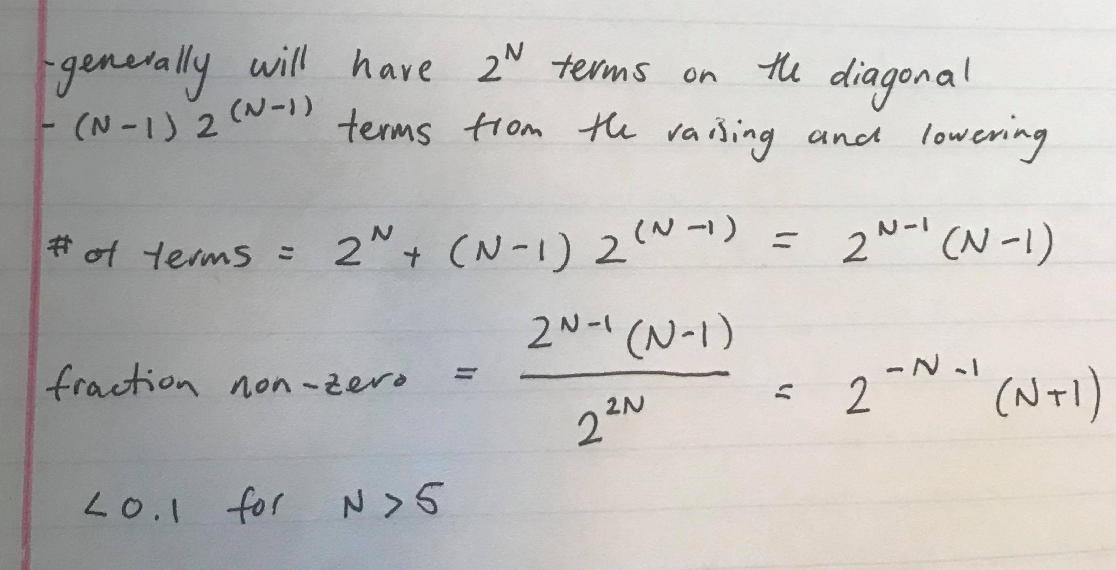 -generally will have 2^N terms on the diagonal
- (N-1) 2^(N-1) terms from the raising and lowering
# of terms = 2^N + (N-1) 2^(N-1) = 2^N-1 (N-1)
fraction non-zero = 2^N-1 (N-1) / 2^2N = 2^-N-1 (N+1)
<0.1 for N>5